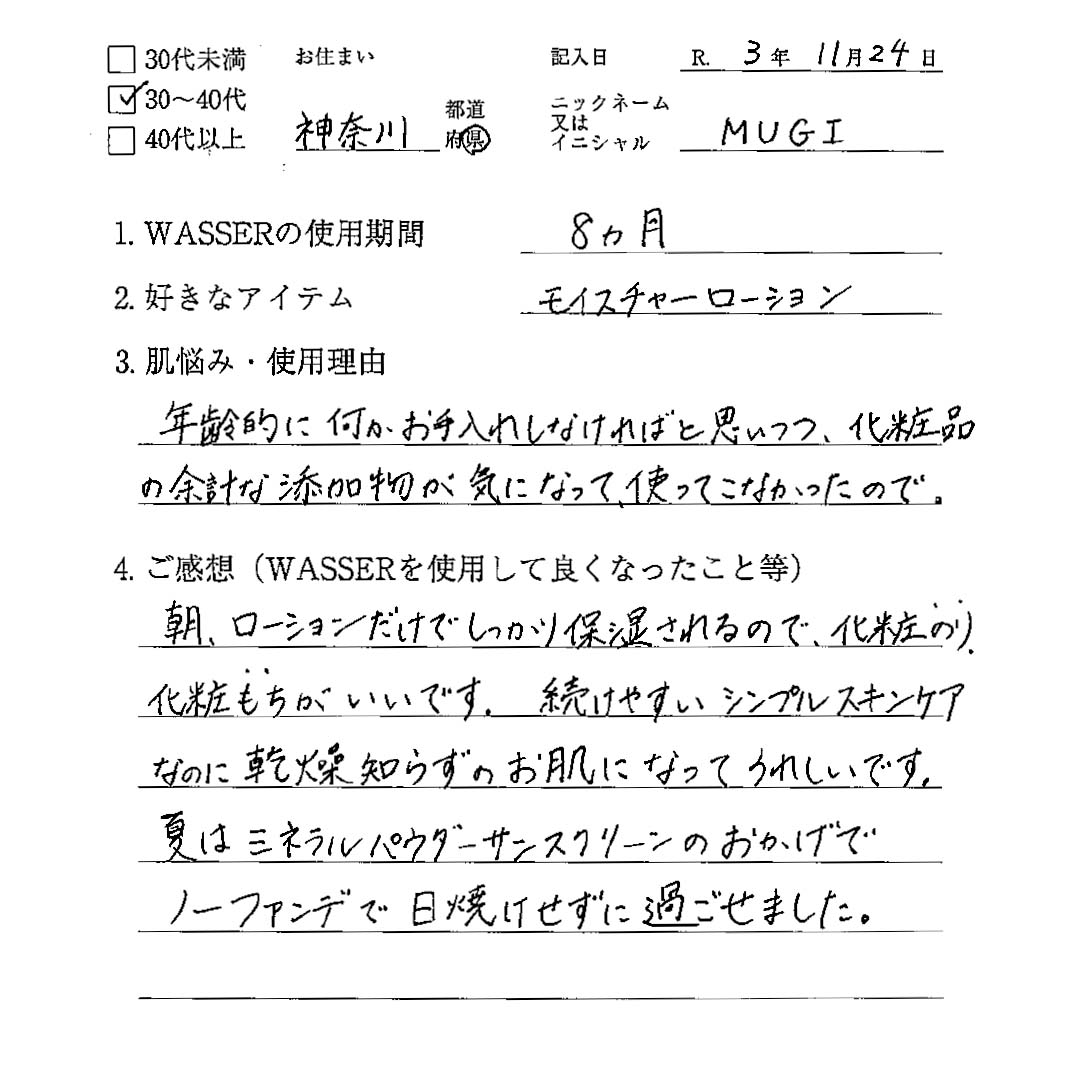 □ 30代未満 お住まい 記入日 R. 3年 11月24日
☑ 30～40代 神奈川 都道府県 ニックネーム又はイニシャル MUGI
□ 40代以上
1. WASSERの使用期間 8ヵ月
2. 好きなアイテム モイスチャーローション
3. 肌悩み・使用理由
年齢的に何かお手入れしなければと思いつつ、化粧品
の余計な添加物が気になって、使ってこなかったので。
4. ご感想（WASSERを使用して良くなったこと等）
朝、ローションだけでしっかり保湿されるので、化粧のり、
化粧もちがいいです。 続けやすいシンプルスキンケア
なのに乾燥知らずのお肌になってうれしいです。
夏はミネラルパウダーサンスクリーンのおかげで
ノーファンデで日焼けせずに過ごせました。